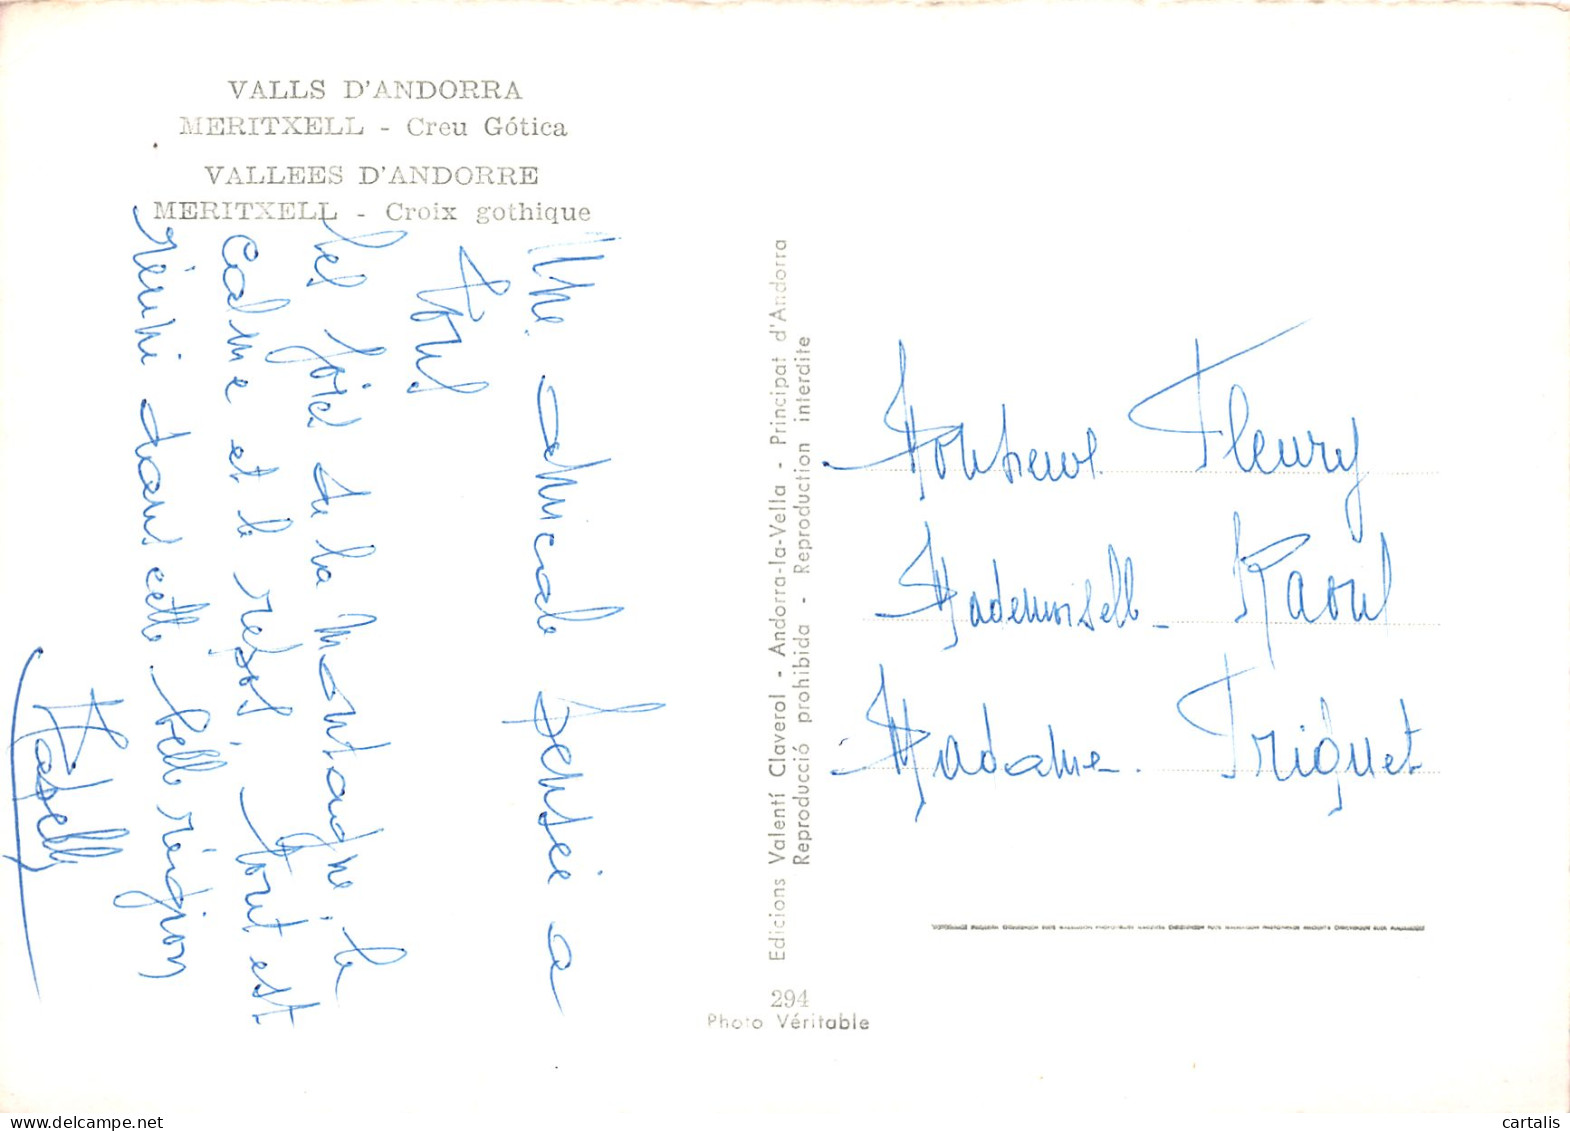 VALLS D'ANDORRA
MERITXELL - Creu Gótica
VALLEES D'ANDORRE
MERITXELL - Croix gothique
Une amicale pensée a
tous
Les joies de la montagne, le
calme et le repos, tout est
réuni dans cette belle région
Edicions Valentí Claverol - Andorra-la-Vella - Principat d'Andorra
Reproducció prohibida - Reproduction interdite
294
Photo Véritable
Monsieur Fleury
Mademoiselle Raoul
Madame Triquet
cartalis